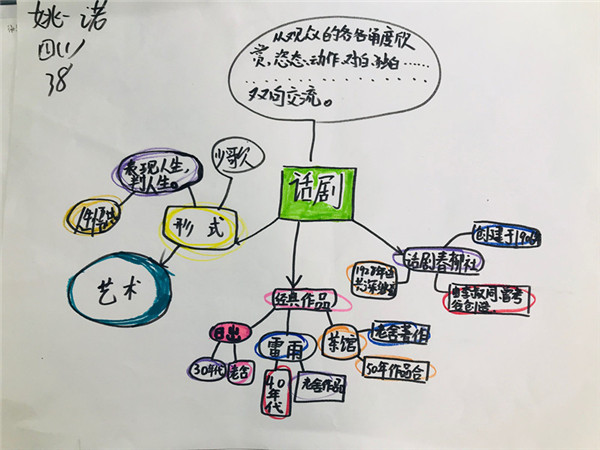 姚一诺
四(1)
38
从观众的各各角度欣
赏,恣态、动作、对白、独白……
双向交流。
话剧
少歌
表现人生,
判人生。
形式
艺术
话剧春柳社
创建于1906
1928年由
经典作品
日出
30年代
老舍
雷雨
40
年代
老舍作品
茶馆
老舍著作
50年作品合